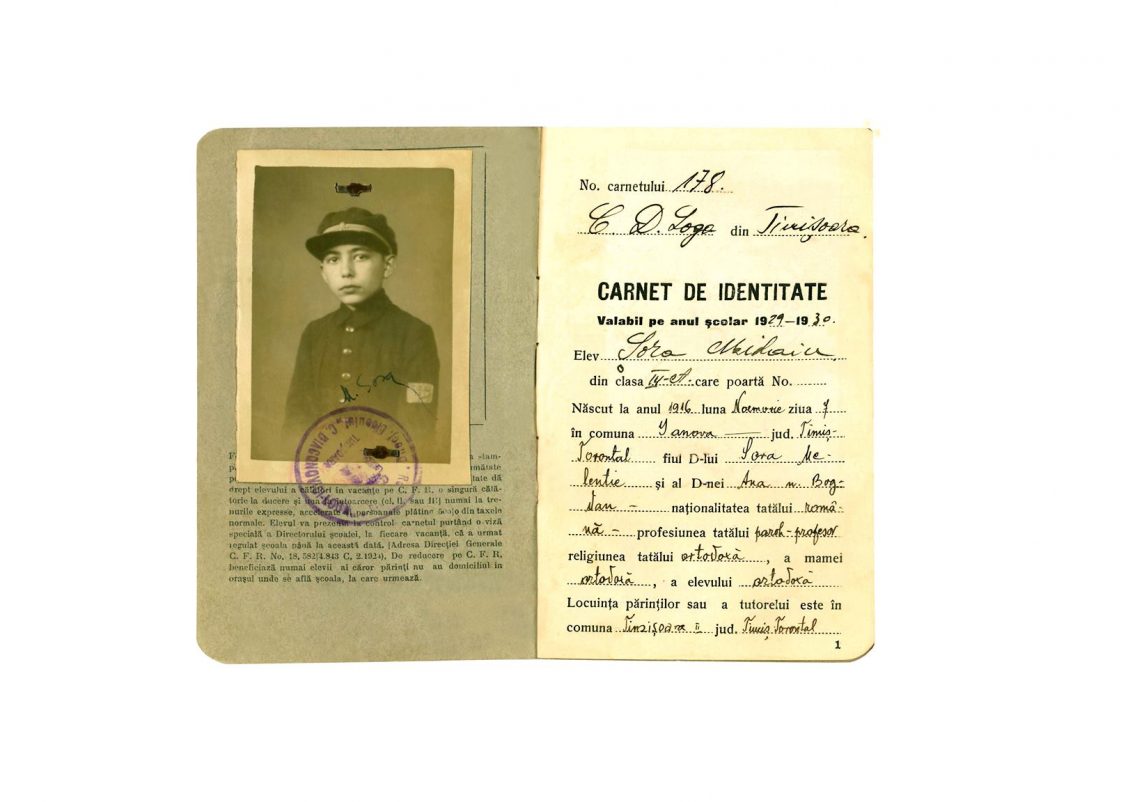 M. Sora
drept elevului a călători în vacanțe pe C. F. R. o singură călă-
torie la ducere și una întoarcere (cl. II. sau III) numai la tre-
nurile expresse, accelerate personale plătind 50% din taxele
normale. Elevul va prezenta la control carnetul purtând o viză
specială a Directorului școalei, la fiecare vacanță, că a urmat
regulat școala până la această dată. (Adresa Direcției Generale
C. F. R. No. 18, 582/4.843 C, 2.1924), De reducere pe C. F. R,
beneficiază numai elevii ai căror părinți nu au domiciliul în
orașul unde se află școala, la care urmează.
No. carnetului 178.
C. D. Loga din Timișoara.
CARNET DE IDENTITATE
Valabil pe anul școlar 1929-1930.
Elev Sora Mihaiu
din clasa IV-A care poartă No.
Născut la anul 1916 luna Noemvrie ziua 7
în comuna Ianova — jud. Timiș-
Torontal fiul D-lui Sora Me-
lentie și al D-nei Ana n. Bog-
dan – naționalitatea tatălui româ-
nă – profesiunea tatălui paroh-profesor
religiunea tatălui ortodoxă, a mamei
ortodoxă, a elevului ortodoxă
Locuința părinților sau a tutorelui este în
comuna Timișoara II jud. Timiș Torontal
1